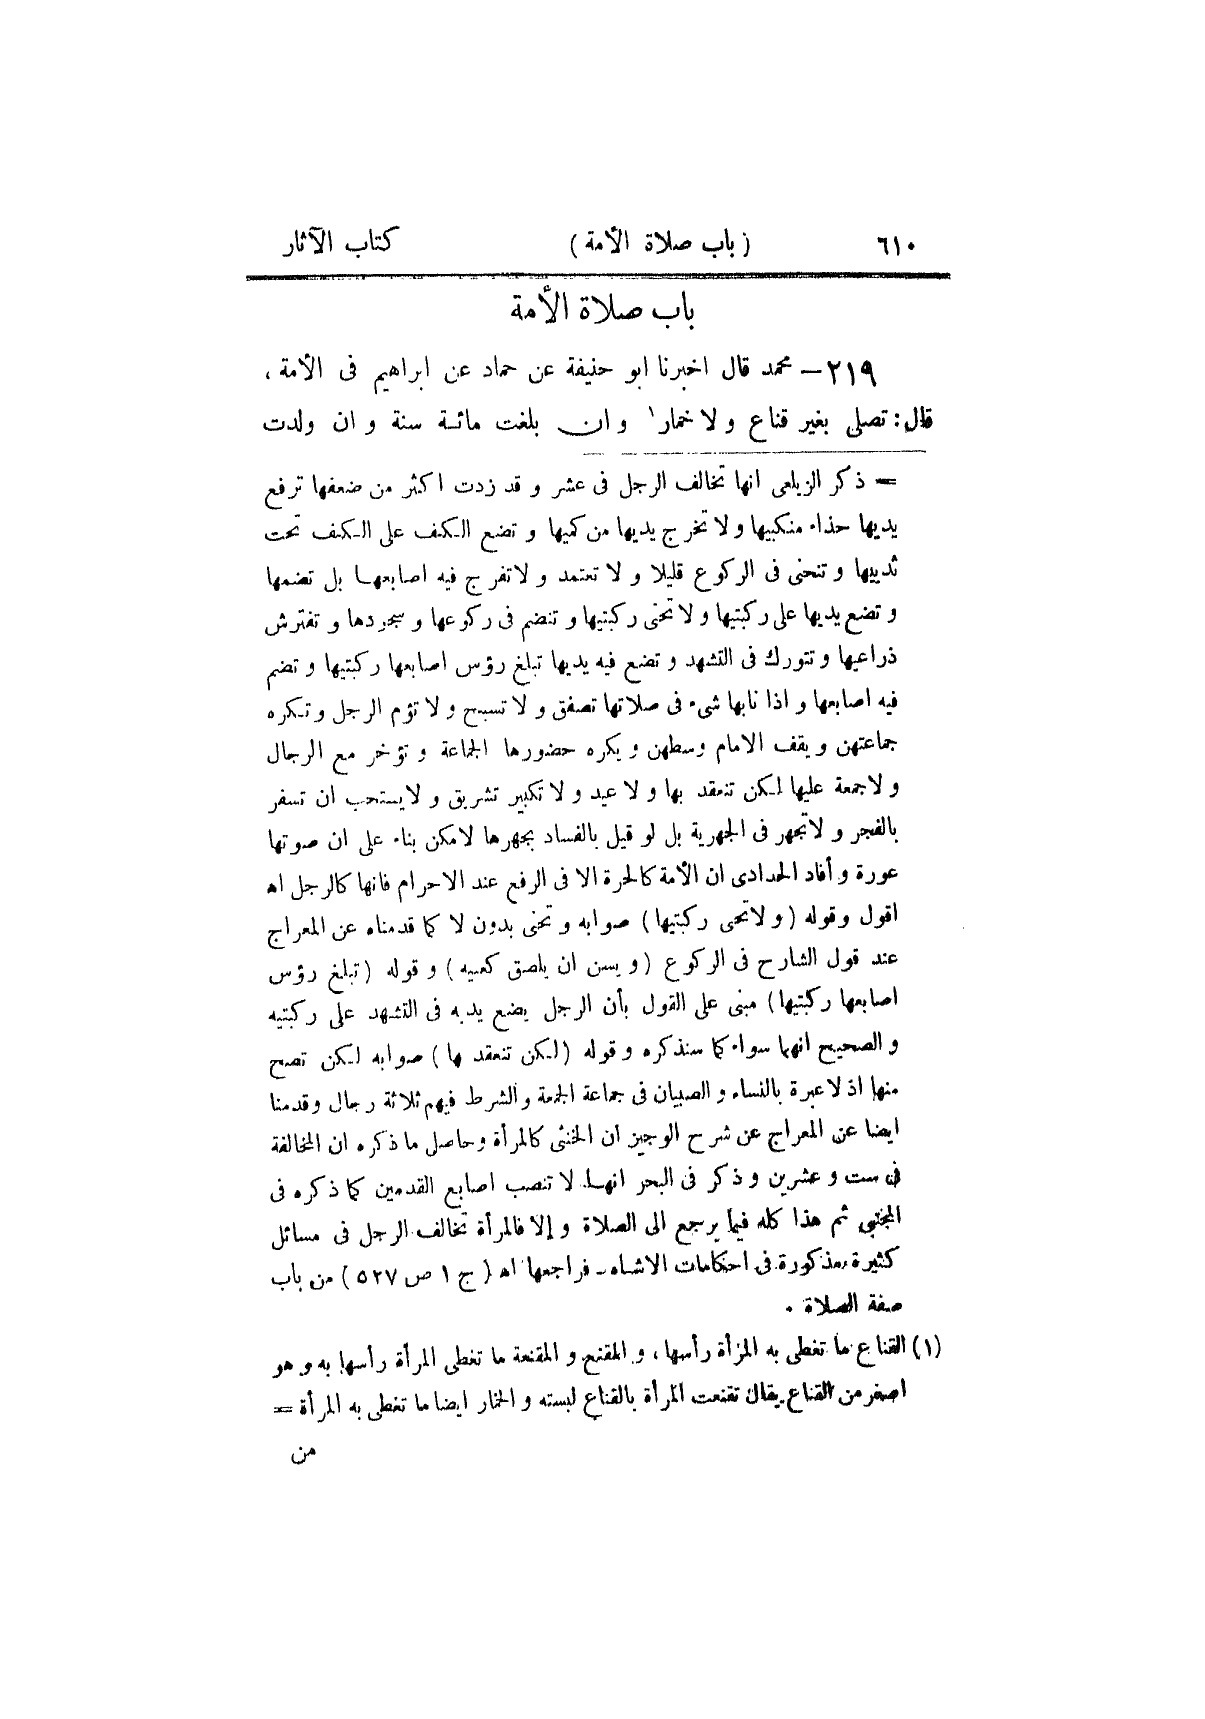 ٦١٠ ( باب صلاة الأمة ) كتاب الآثار
باب صلاة الأمة
٢١٩ – محمد قال اخبرنا ابو حنيفة عن حماد عن ابراهيم فى الأمة ،
قال : تصلى بغير قناع و لا خمار١ و ان بلغت مائة سنة و ان ولدت
= ذكر الزيلعى انها تخالف الرجل فى عشر و قد زدت اكثر من ضعفها ترفع
يديها حذاء منكبيها و لا تخرج يديها من كميها و تضع الكف على الكف تحت
ثدييها و تنحنى فى الركوع قليلا و لا تعتمد و لا تفرج فيه اصابعها بل تضمها
و تضع يديها على ركبتيها و لا تحنى ركبتيها و تنضم فى ركوعها و سجودها و تفترش
ذراعيها و تتورك فى التشهد و تضع فيه يديها تبلغ رؤس اصابعها ركبتيها و تضم
فيه اصابعها و اذا نابها شىء فى صلاتها تصفق و لا تسبح و لا تؤم الرجل و تكره
جماعتهن و يقف الامام وسطهن و يكره حضورها الجماعة و تؤخر مع الرجال
و لا جمعة عليها لكن تنعقد بها و لا عيد و لا تكبير تشريق و لا يستحب ان تسفر
بالفجر و لا تجهر فى الجهرية بل لو قيل بالفساد بجهرها لامكن بناء على ان صوتها
عورة و أفاد الحدادى ان الأمة كالحرة الا فى الرفع عند الاحرام فانها كالرجل اه
اقول وقوله ( و لا تحنى ركبتيها ) صوابه و تحنى بدون لا كما قدمناه عن المعراج
عند قول الشارح فى الركوع ( و يسن ان يلصق كعبيه ) و قوله ( تبلغ رؤس
اصابعها ركبتيها ) مبنى على القول بأن الرجل يضع يديه فى التشهد على ركبتيه
و الصحيح انهما سواء كما سنذكره و قوله ( لكن تنعقد بها ) صوابه لكن تصح
منها اذ لا عبرة بالنساء و الصبيان فى جماعة الجمعة و الشرط فيهم ثلاثة رجال وقدمنا
ايضا عن المعراج عن شرح الوجيز ان الخنثى كالمرأة وحاصل ما ذكره ان المخالفة
فى ست و عشرين و ذكر فى البحر انها لا تنصب اصابع القدمين كما ذكره فى
المجتبى ثم هذا كله فيما يرجع الى الصلاة و إلا فالمرأة تخالف الرجل فى مسائل
كثيرة مذكورة فى احكامات الاشباه – فراجعها اه ( ج ١ ص ٥٢٧ ) من باب
صفة الصلاة .
(١) القناع ما تغطى به المرأة رأسها ، و المقنع و المقنعة ما تغطى المرأة رأسها به و هو
اصغر من القناع يقال تقنعت المرأة بالقناع لبسته و الخمار ايضا ما تغطى به المرأة =
من